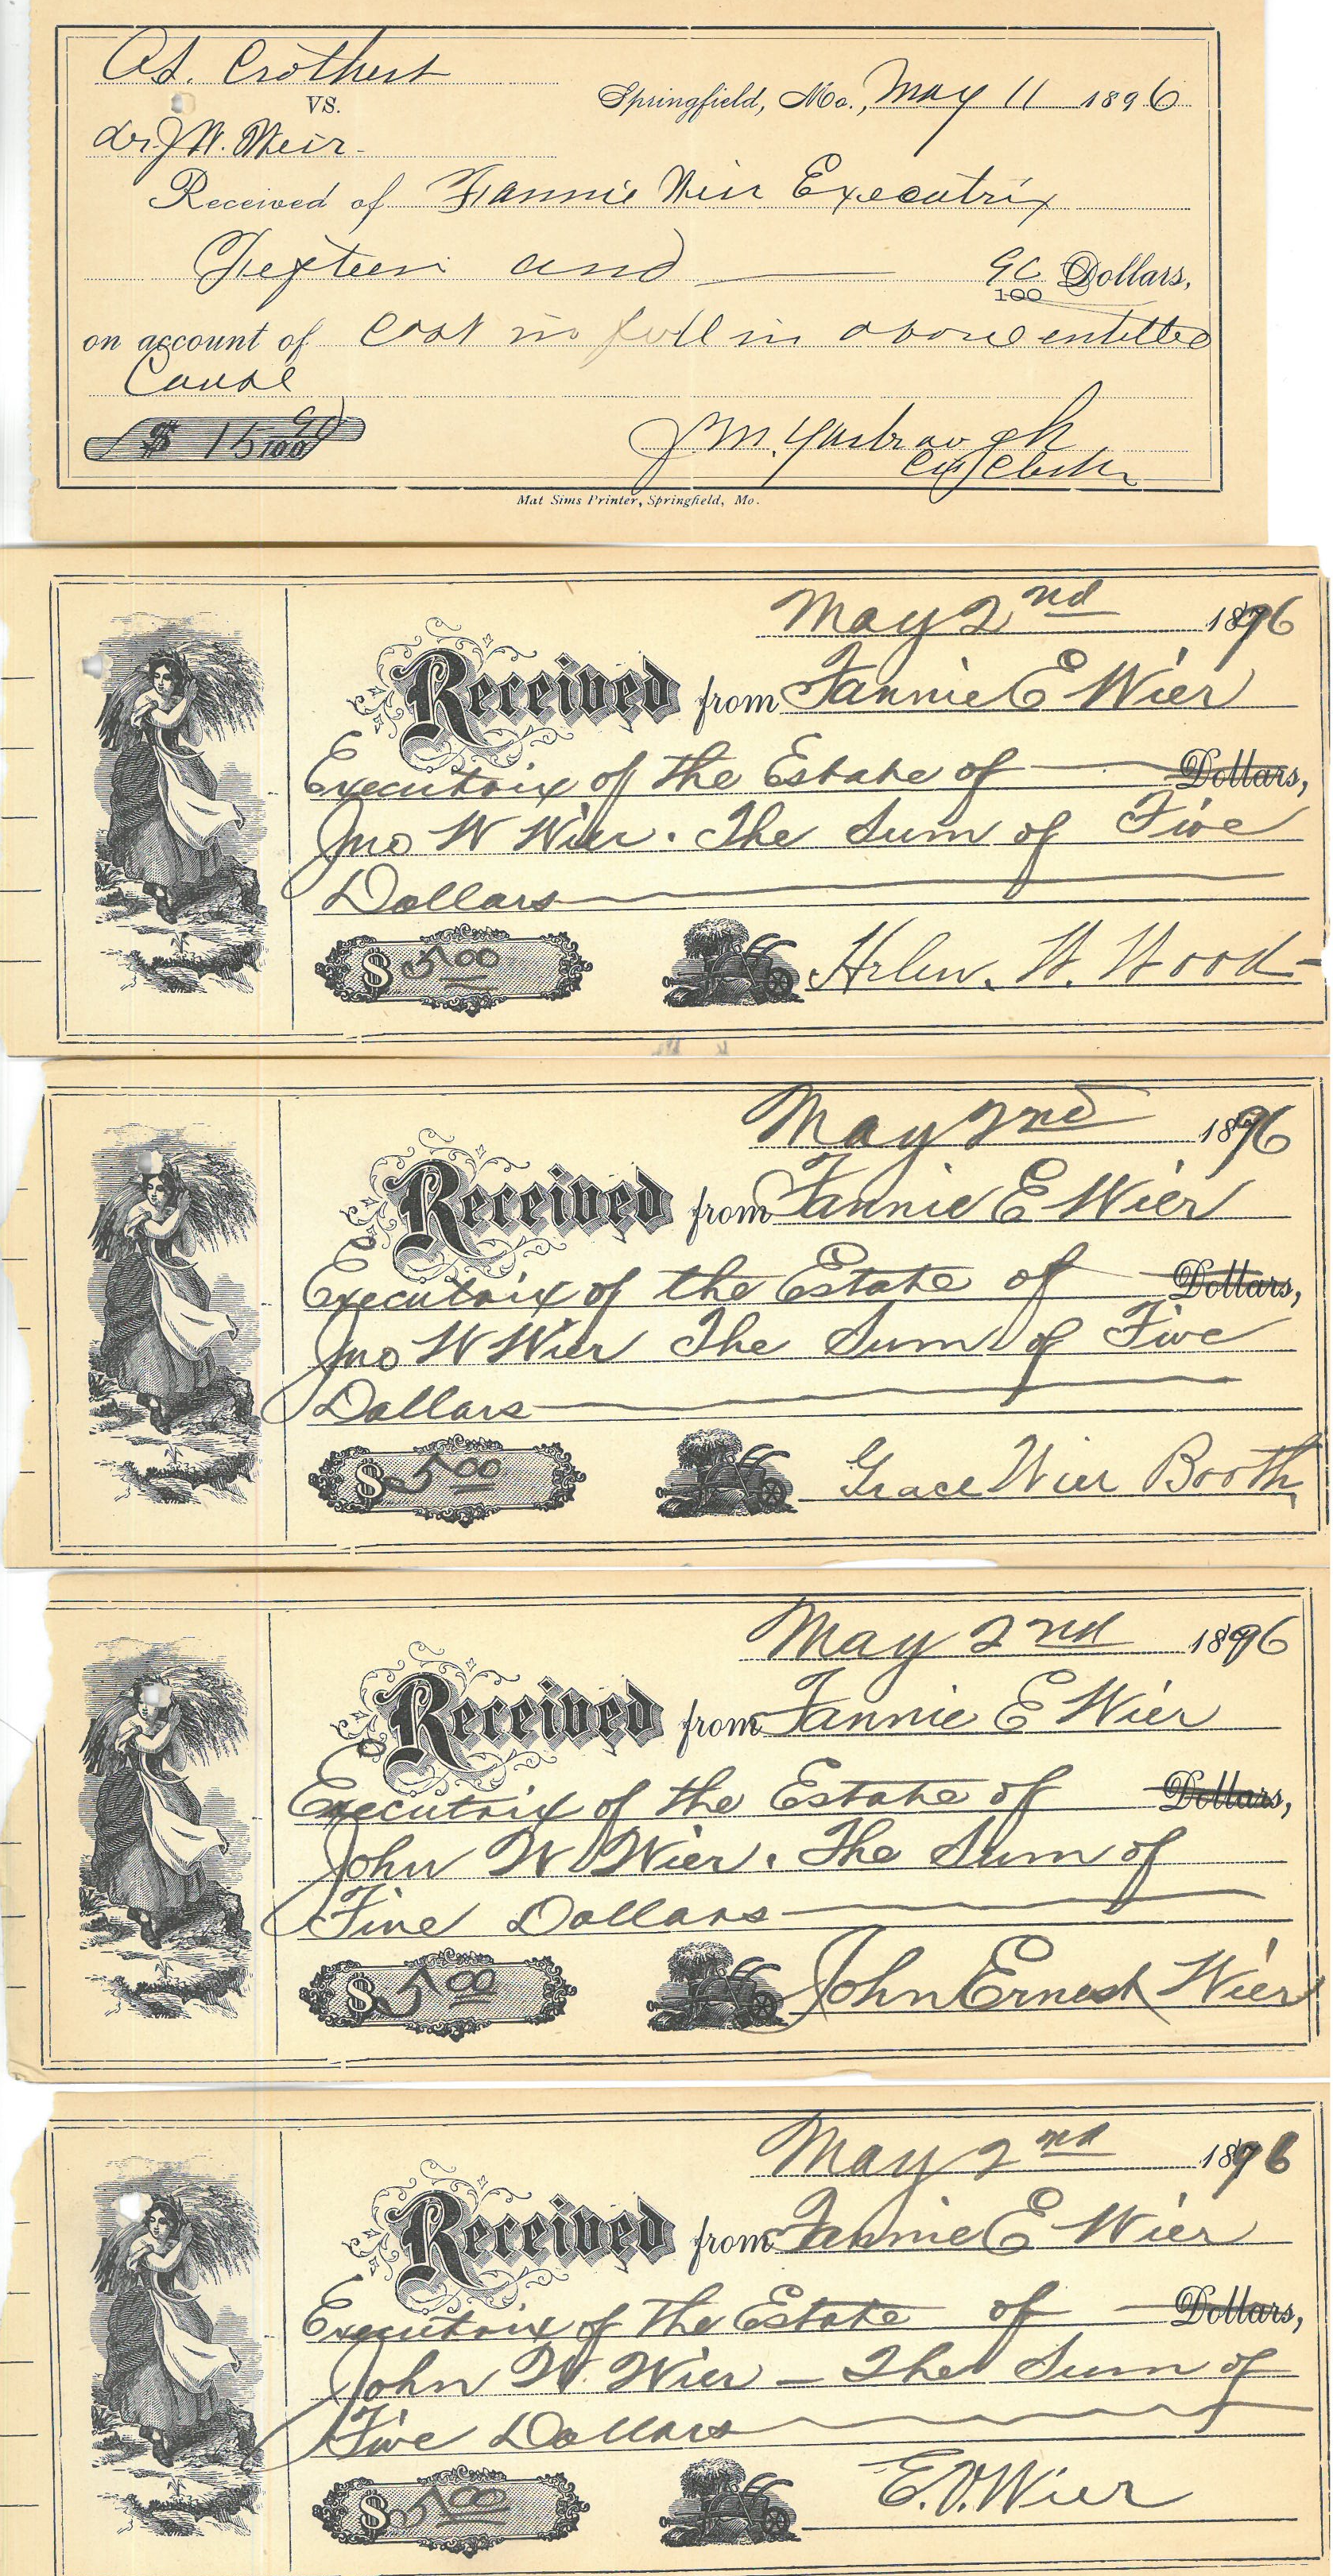 Crothers
VS. Springfield, Mo., May 11 1896
J W. Weir
Received of Fannie Weir Executrix
Fifteen and 90/100 Dollars,
on account of Cost in full in above entitled
Cause
$ 15 90/100 J M. Yarbrough
Cir Clerk
Mat Sims Printer, Springfield, Mo.
May 2nd 1896
Received from Fannie E Wier
Executrix of the Estate of Dollars,
Jno W Wier. The Sum of Five
Dollars
$ 5.00 Helen. W. Wood
May 2nd 1896
Received from Fannie E Wier
Executrix of the Estate of Dollars,
Jno W Wier The Sum of Five
Dollars
$ 5.00 Grace Wier Booth
May 2nd 1896
Received from Fannie E Wier
Executrix of the Estate of Dollars,
John W Wier. The Sum of
Five Dollars
$ 5.00 John Ernest Wier
May 2nd 1896
Received from Fannie E Wier
Executrix of the Estate of Dollars,
John W. Wier – The Sum of
Five Dollars
$ 5.00 E.V. Wier